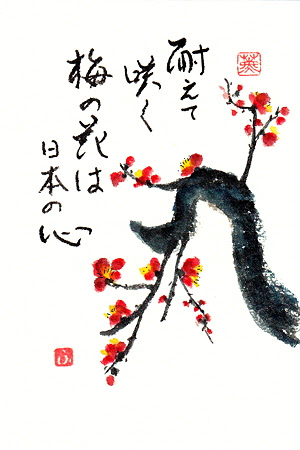 耐えて
咲く
梅の花は
日本の心
ふ